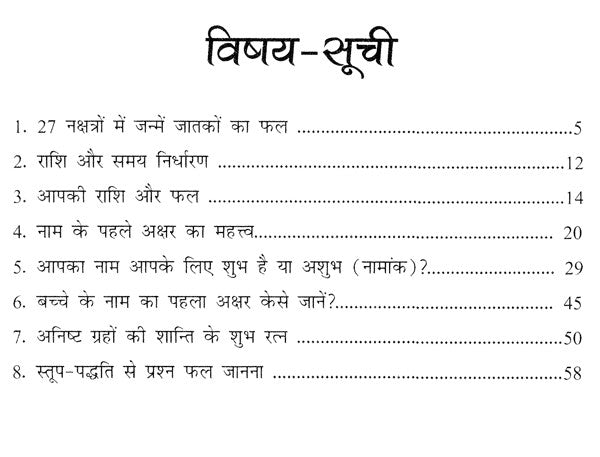 विषय-सूची
1. 27 नक्षत्रों में जन्में जातकों का फल ..................................................5
2. राशि और समय निर्धारण ..............................................................12
3. आपकी राशि और फल .................................................................14
4. नाम के पहले अक्षर का महत्त्व...................................................... 20
5. आपका नाम आपके लिए शुभ है या अशुभ (नामांक)?...................... 29
6. बच्चे के नाम का पहला अक्षर केसे जानें?....................................... 45
7. अनिष्ट ग्रहों की शान्ति के शुभ रत्न ...............................................50
8. स्तूप-पद्धति से प्रश्न फल जानना ....................................................58